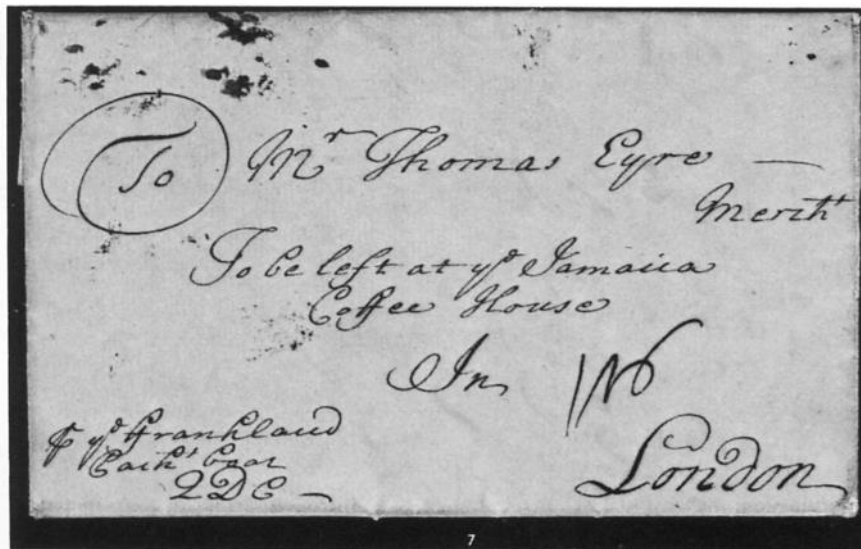 To Mr Thomas Eyre —
Mercht
To be left at ye Jamaica
Coffee House
In
London
ye Frankland
QDC —
7